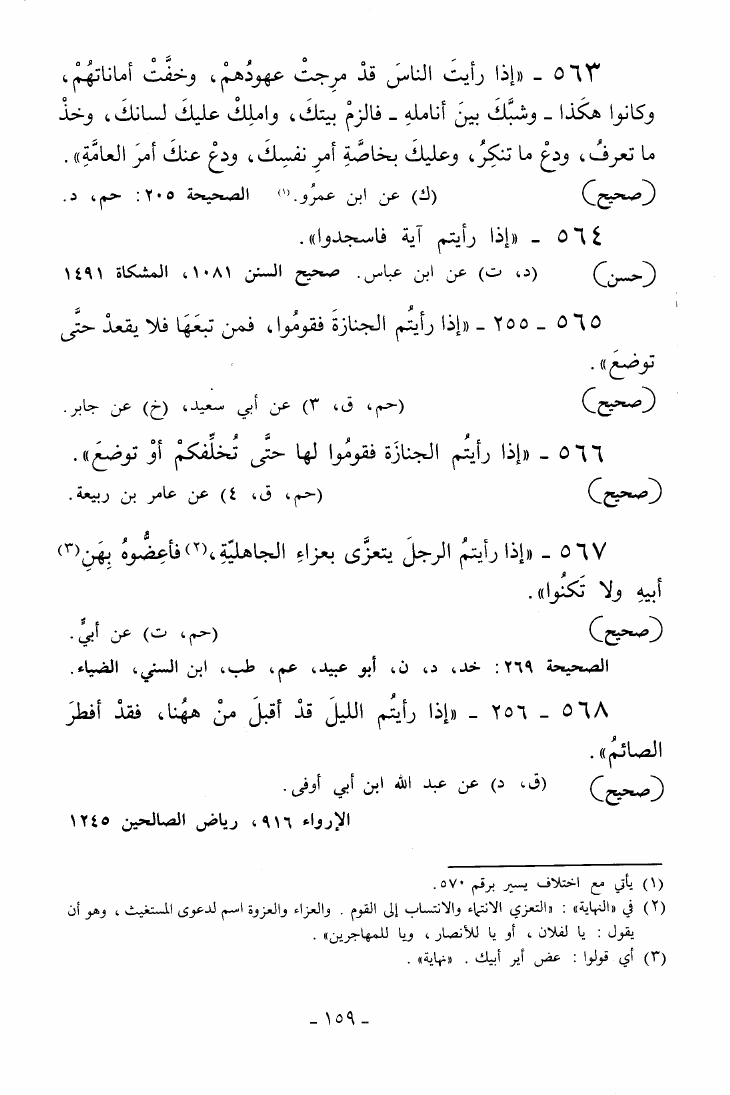 ٥٦٣ ـ «إذا رأيتَ الناسَ قدْ مرِجتْ عهودُهمْ، وخفَّتْ أماناتهُمْ،
وكانوا هكَذا ـ وشبَّكَ بينَ أناملهِ ـ فالزمْ بيتكَ، واملِكْ عليكَ لسانكَ، وخذْ
ما تعرفُ، ودعْ ما تنكِرُ، وعليكَ بخاصَّةِ أمرِ نفسِكَ، ودعْ عنكَ أمرَ العامَّةِ».
(صحيح) (ك) عن ابن عمرُو.(١) الصحيحة ٢٠٥: حم، د.
٥٦٤ ـ «إذا رأيتم آية فاسجدوا».
(حسن) (د، ت) عن ابن عباس. صحيح السنن ١٠٨١، المشكاة ١٤٩١
٥٦٥ ـ ٢٥٥ ـ «إذا رأيتُم الجنازةَ فقومُوا، فمن تبعَهَا فلا يقعدْ حتَّى
توضعَ».
(صحيح) (حم، ق، ٣) عن أبي سعيد، (خ) عن جابر.
٥٦٦ ـ «إذا رأيتُم الجنازَة فقومُوا لها حتَّى تُخلِّفكمْ أوْ توضعَ».
(صحيح) (حم، ق، ٤) عن عامر بن ربيعة.
٥٦٧ ـ «إذا رأيتمُ الرجلَ يتعزَّى بعزاءِ الجاهليّةِ،(٢) فأعِضُّوهُ بِهَنِ(٣)
أبيهِ ولا تَكنُوا».
(صحيح) (حم، ت) عن أبيٍّ.
الصحيحة ٢٦٩: خد، د، ن، أبو عبيد، عم، طب، ابن السني، الضياء.
٥٦٨ ـ ٢٥٦ ـ «إذا رأيتُم الليلَ قدْ أقبلَ منْ ههُنا، فقدْ أفطرَ
الصائمُ».
(صحيح) (ق، د) عن عبد الله ابن أبي أوفى.
الإرواء ٩١٦، رياض الصالحين ١٢٤٥
(١) يأتي مع اختلاف يسير برقم ٥٧٠.
(٢) في «النهاية» : «التعزي الانتماء والانتساب إلى القوم . والعزاء والعزوة اسم لدعوى المستغيث ، وهو أن
يقول : يا لفلان ، أو يا للأنصار ، ويا للمهاجرين» .
(٣) أي قولوا : عض أير أبيك . «نهاية» .
ـ ١٥٩ ـ